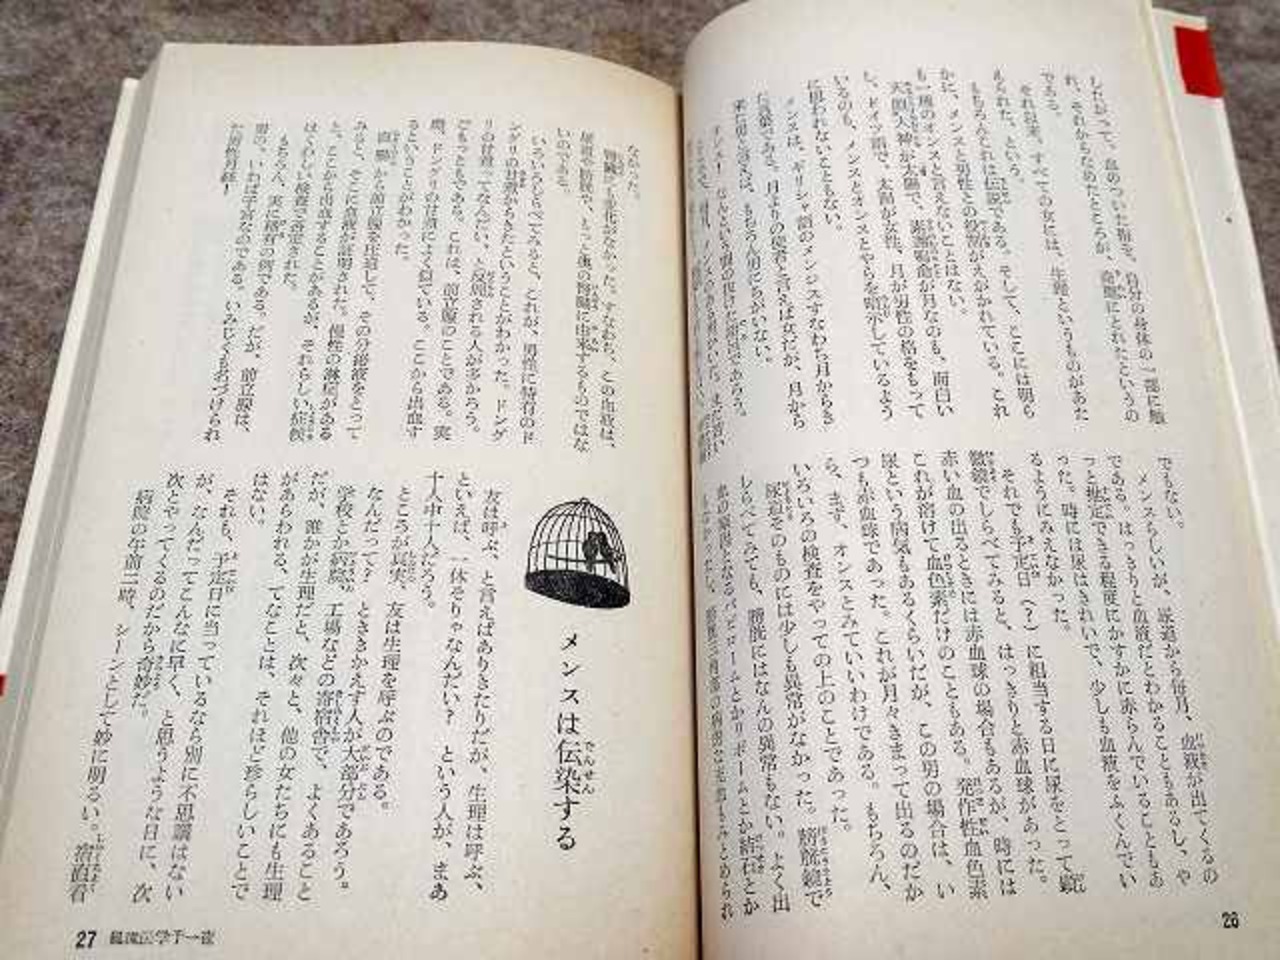 したがって、血のついた指で、自分の身体の一部に触
れ、それからなめたところが、
である。
それ以来、すべての女には、生理というものがあた
えられた、という。
もちろんこれは伝説である。そして、ここには明ら
かに、メンスと男性との役割がえがかれている。これ
も一種のオンスと言えないことはない。
天照大神が太陽で、素盞嗚命が月なのも、面白い
し、ドイツ語で、太陽が女性、月が男性の格をもって
いるのも、メンスとオンスとやらを暗示しているよう
に思われないともない。
メンスは、ギリシャ語のメンジスすなわち月からき
た言葉である。月よりの使者と言えば女だが、月から
来た男と言えば、もちろん
でもない。
メンスらしいが、尿道から毎月、血液が出てくるの
である。はっきりと血液だとわかることもあるし、や
っと推定できる程度にかすかに赤らんでいることもあ
った。時には尿はきれいで、少しも血液をふくんでい
るようにみえなかった。
それでも予定日（？）に相当する日に尿をとって顕
微鏡でしらべてみると、はっきりと赤血球があった。
赤い血の出るときには赤血球の場合もあるが、時には
これが溶けて血色素だけのこともある。発作性血色素
尿という病気もあるくらいだが、この男の場合は、い
つも赤血球であった。これが月々きまって出るのだか
ら、まず、オンスとみていいわけである。もちろん、
いろいろの検査をやっての上のことであった。
尿道そのものには少しも異常がなかった。膀胱鏡で
しらべてみても、膀胱にはなんの異常もない。よく出
血の原因となるパピロームとかリポームとか結石とか
26
なかった。
腎臓にも変化がなかった。すなわち、この血液は、
尿道や膀胱や、もっと奥の腎臓に由来するものではな
いのである。
いろいろしらべてみると、これが、男性に特有のド
ングリの甘煮からきたということがわかった。ドング
リの甘煮ってなんだい、と反問される人が多かろう。
ごもっともである。これは、前立腺のことである。実
際、ドングリの甘煮によく似ている。ここから出血す
るということがわかった。
直腸から前立腺を圧迫して、その分泌液をとって
みると、そこに血液が証明された。慢性の淋病がある
と、ここから出血することがあるが、それらしい症候
はくわしい検査で否定された。
もちろん、実に稀有の例である。だが、前立腺は、
男の、いわば子宮なのである。いみじくも名づけられ
た前立腺！
メンスは伝染する
でんせん
友は呼ぶ、と言えばありきたりだが、生理は呼ぶ、
といえば、一体そりゃなんだい？　という人が、まあ
十人中十人だろう。
ところが真実、友は生理を呼ぶのである。
なんだって？　とききかえす人が大部分であろう。
学校とか病院、工場などの寄宿舎で、よくあること
だが、誰かが生理だと、次々と、他の女たちにも生理
があらわれる、てなことは、それほど珍らしいことで
はない。
それも、予定日に当っているなら別に不思議はない
が、なんだってこんなに早く、と思うような日に、次
次とやってくるのだから奇妙だ。
病院の午前二時、シーンとして妙に明るい。宿直看
27　風流医学千一夜